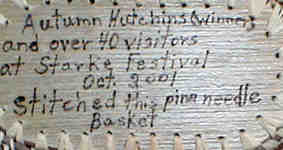 Autumn Hutchins (winner)
and over 40 visitors
at Starke Festival
Oct. 2001
stitched this pine needle
Basket